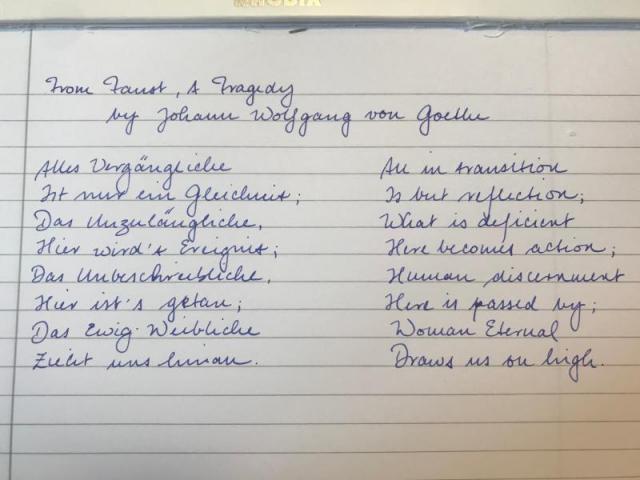 RHODIX
From Faust, A Tragedy
by Johann Wolfgang von Goethe
Alles Vergängliche
Ist nur ein Gleichnis;
Das Unzulängliche,
Hier wird's Ereignis;
Das Unbeschreibliche,
Hier ist's getan;
Das Ewig-Weibliche
Zieht uns hinan.
All in transition
Is but reflection;
What is deficient
Here becomes action;
Human discernment
Here is passed by;
Woman Eternal
Draws us on high.